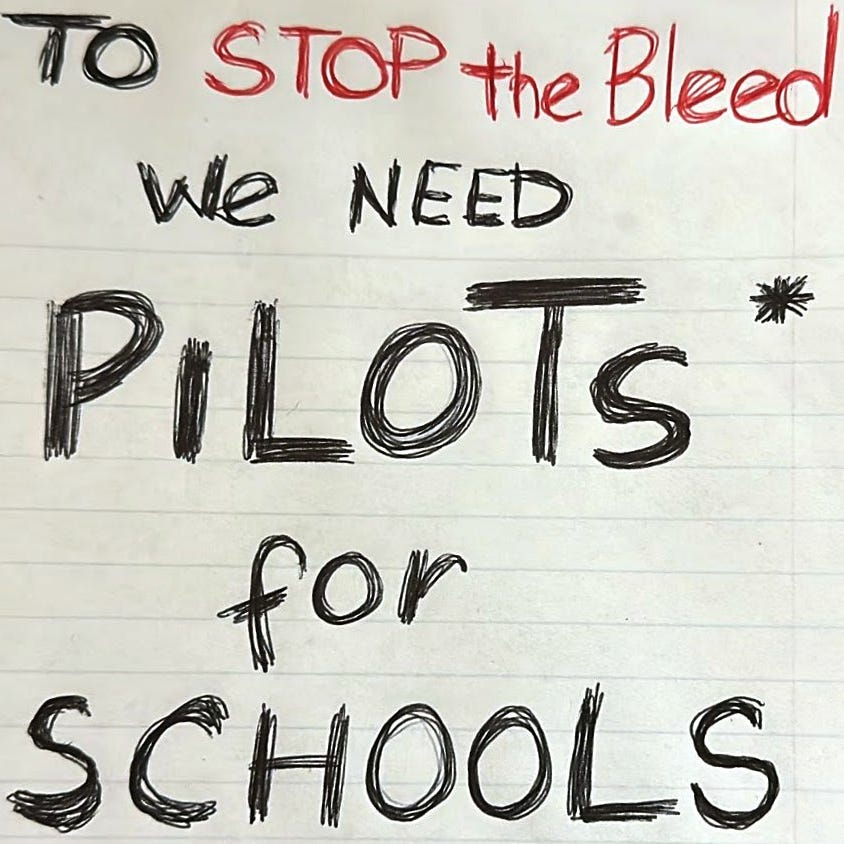 TO STOP the Bleed
we NEED
PiLOTs *
for
SCHOOLS